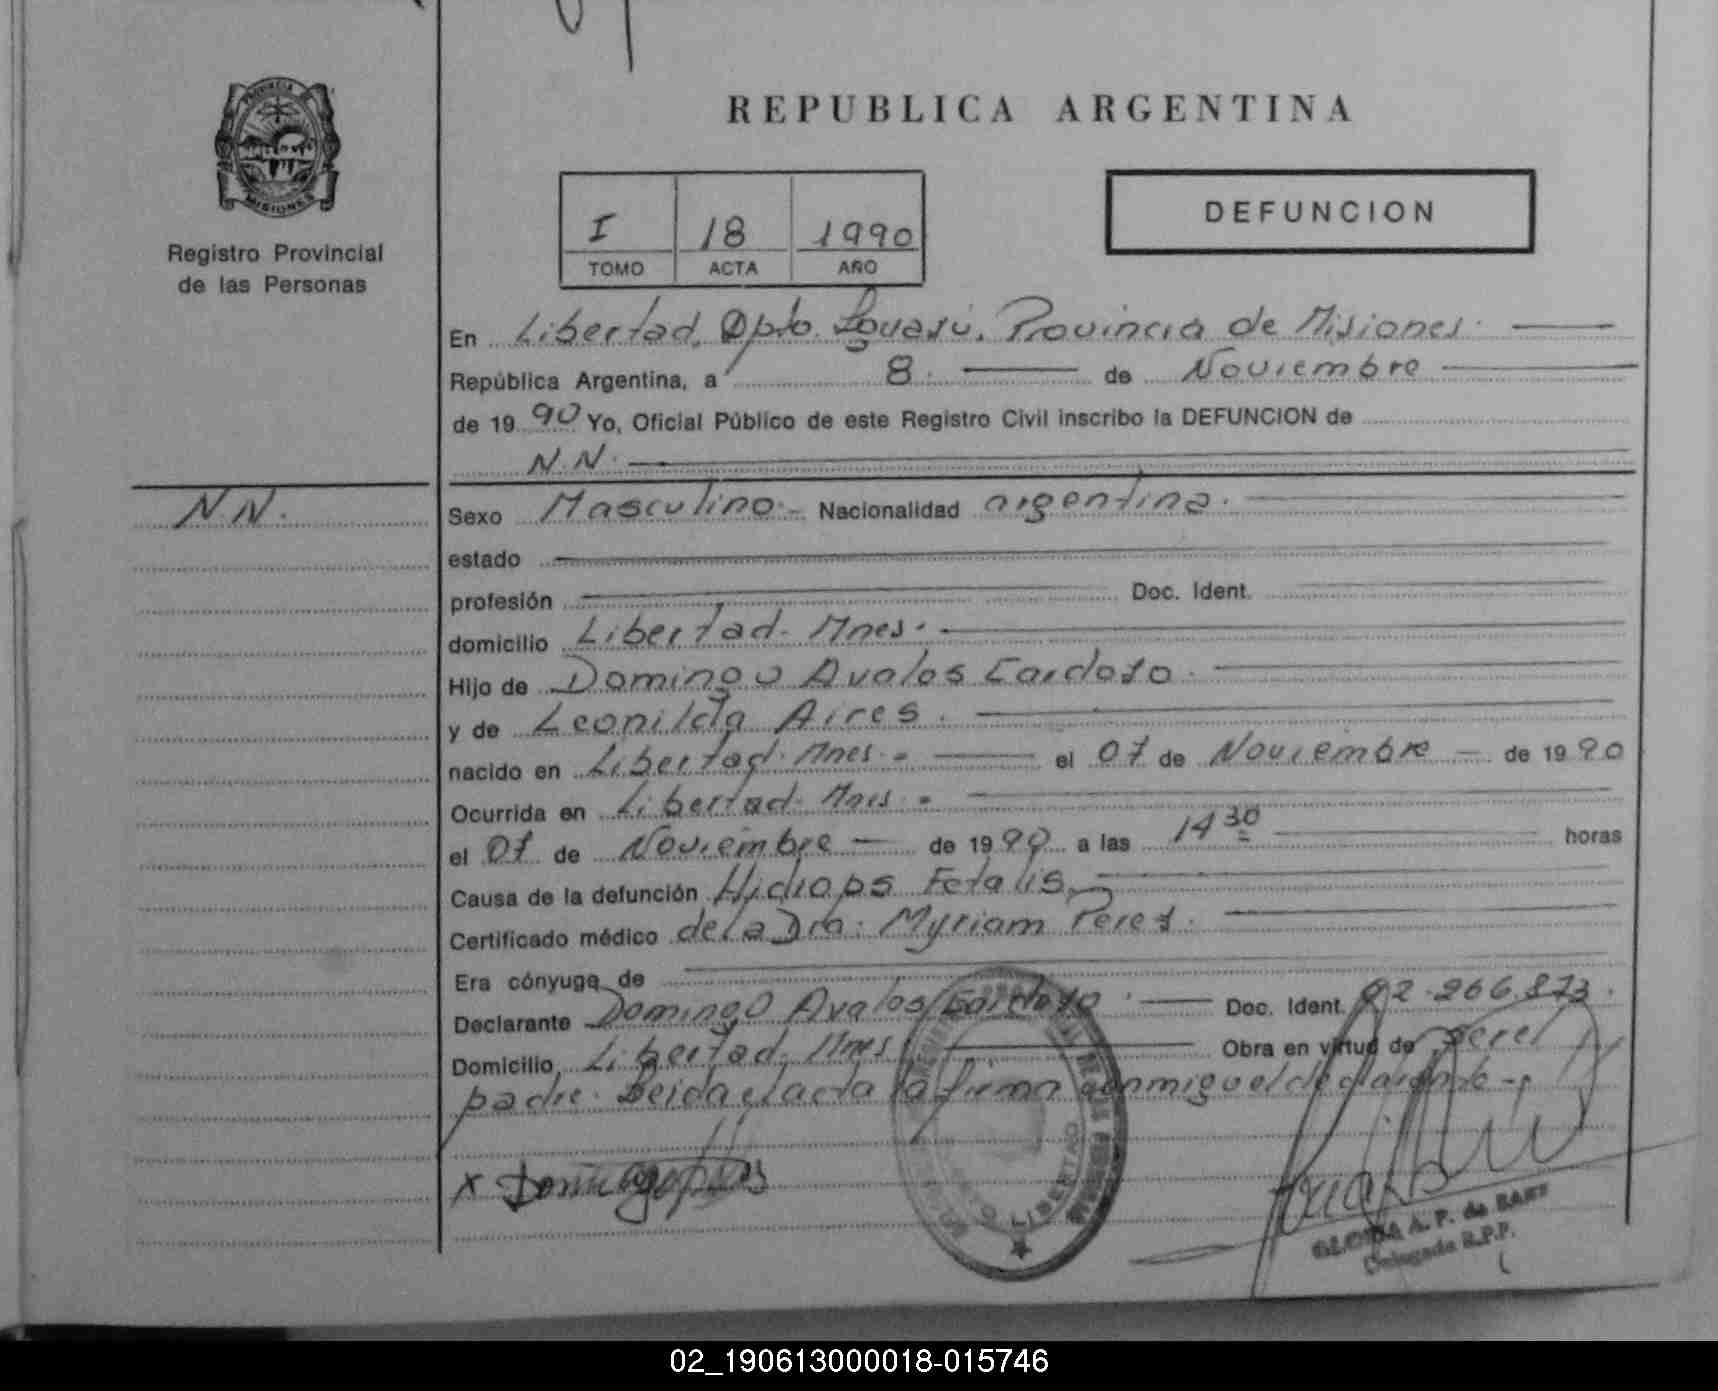 REPUBLICA ARGENTINA
PROVINCIA DE
MISIONES
Registro Provincial
de las Personas
I 18 1990
TOMO ACTA AÑO
DEFUNCION
En Libertad, Dpto. Iguasú. Provincia de Misiones.
República Argentina, a 8. de Noviembre
de 19 90 Yo, Oficial Público de este Registro Civil inscribo la DEFUNCION de
N.N.
N.N.
Sexo Masculino.- Nacionalidad argentina.
estado
profesión Doc. Ident.
domicilio Libertad. Mnes.
Hijo de Domingo Avalos Cardoso.
y de Leonilda Aires.
nacido en Libertad. Mnes.- el 07 de Noviembre de 19 90
Ocurrida en Libertad. Mnes.-
el 07 de Noviembre de 19 90 a las 14 30 horas
Causa de la defunción Hidrops Fetalis
Certificado médico de la Dra. Myriam Peres.
Era cónyuge de
Declarante Domingo Avalos Cardoso. Doc. Ident. 92.266.873.
Domicilio Libertad. Mnes. Obra en virtud de ser el
padre. Leida el acta la firma conmigo el declarante-
X Domingo
LIBERTAD
GLORIA A. P. de BAEZ
Delegada R.P.P.
02_190613000018-015746